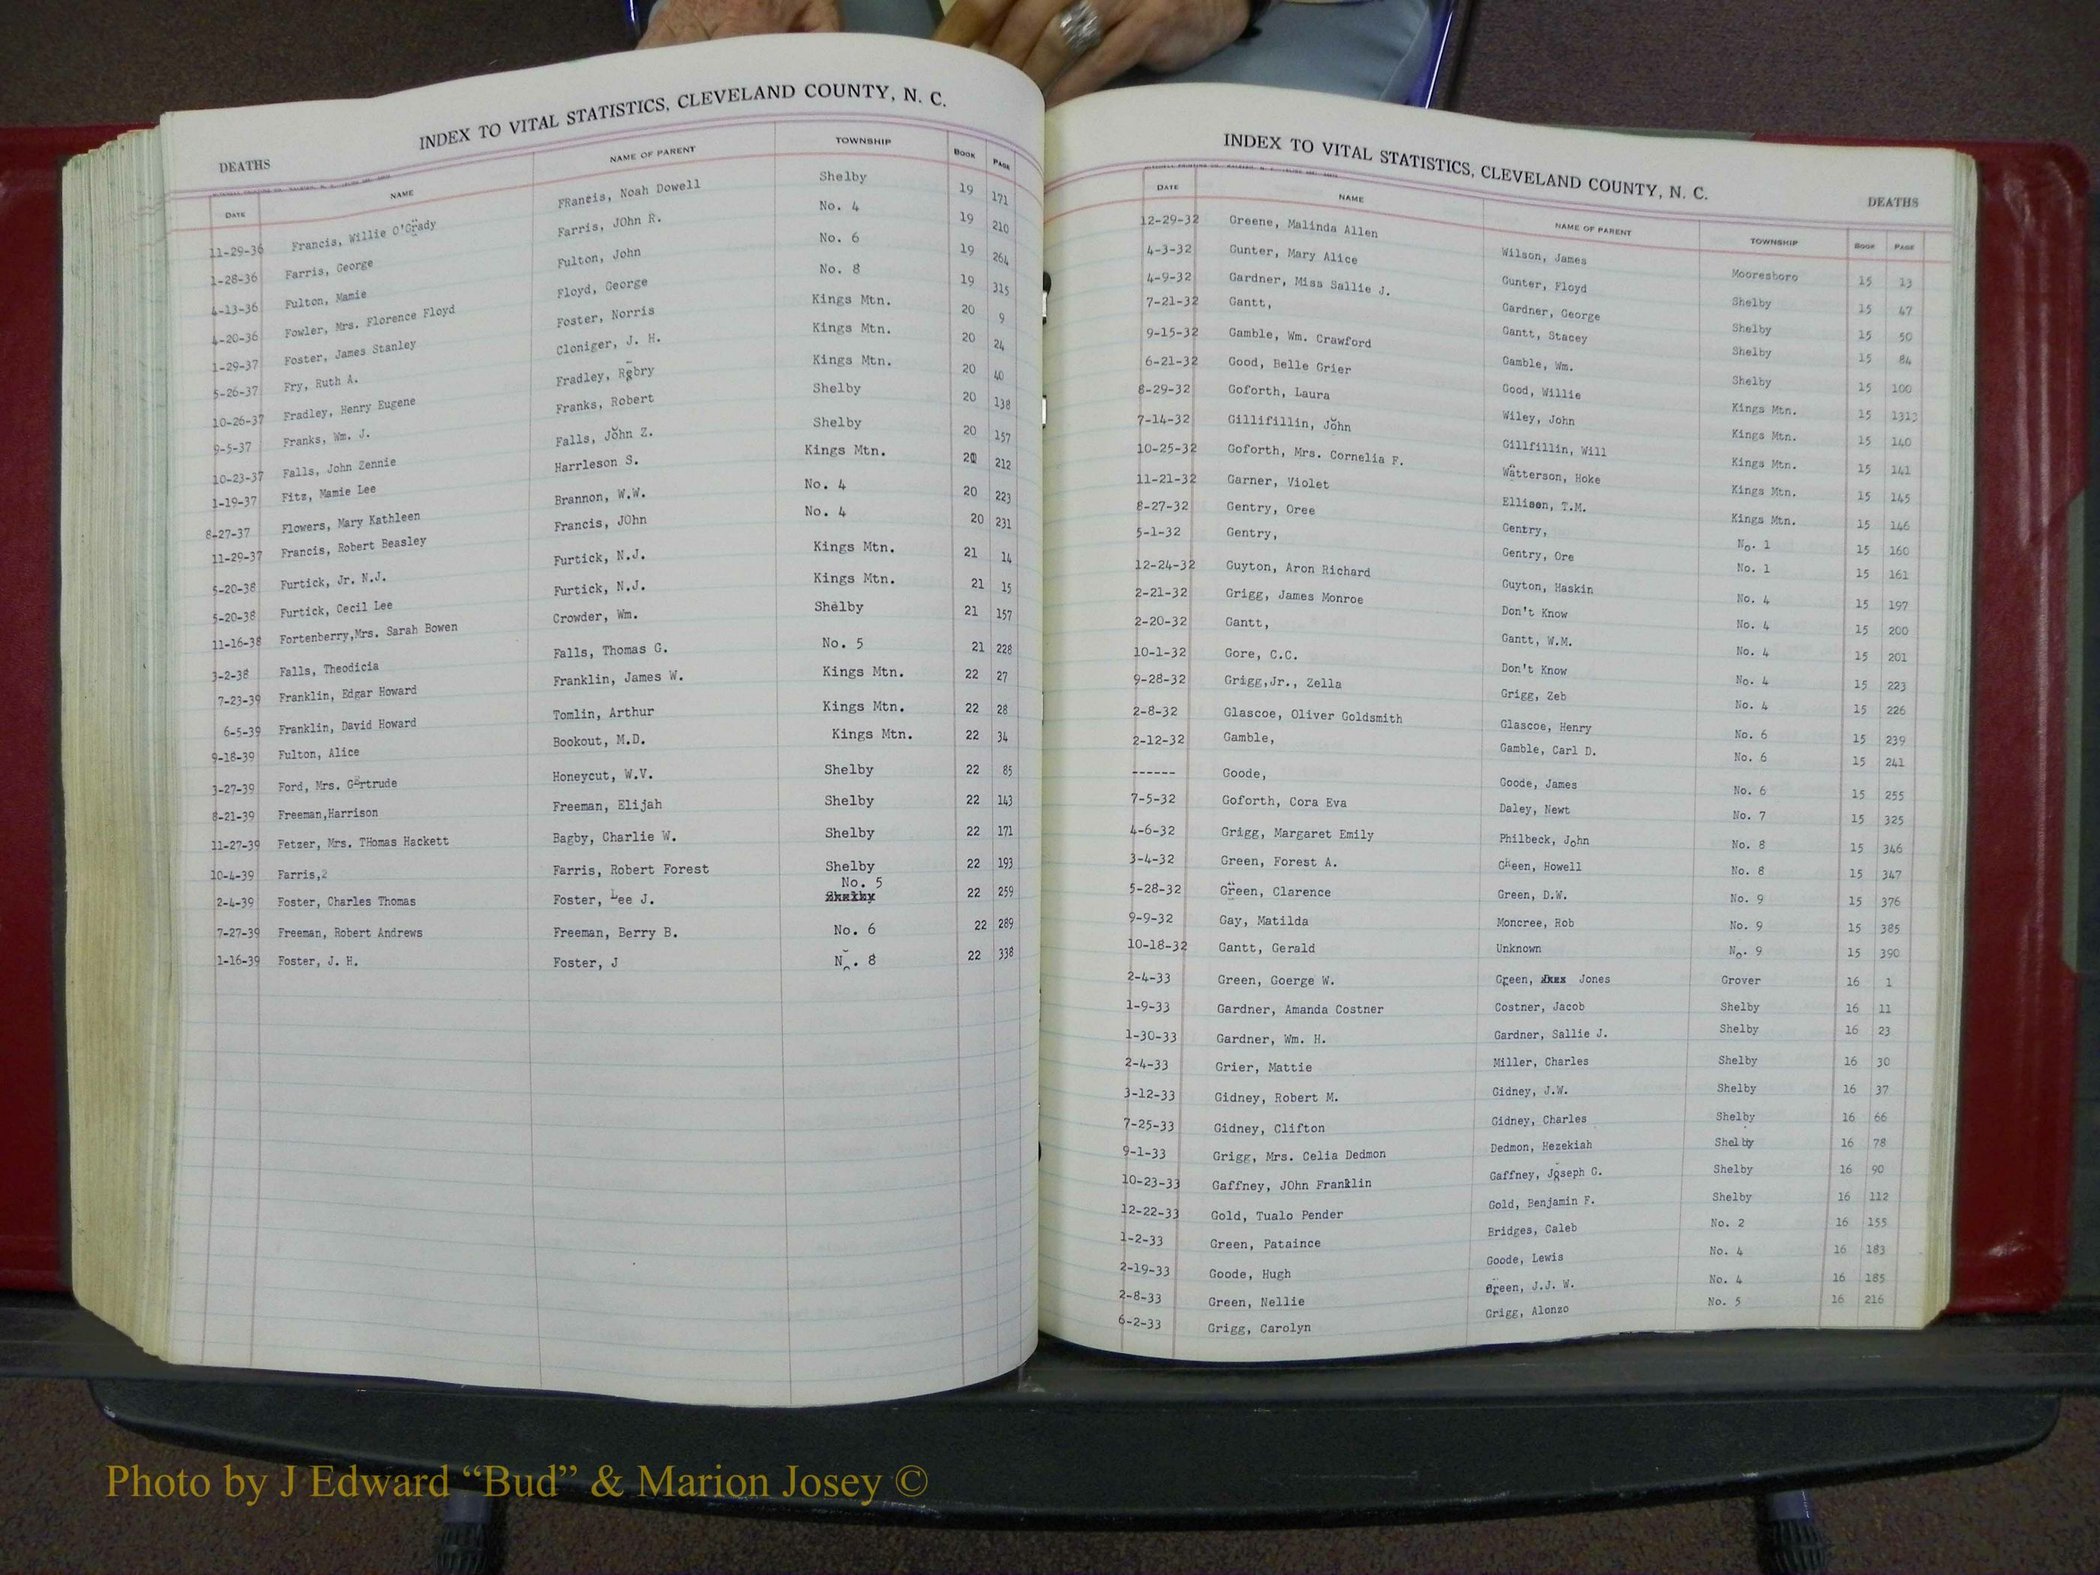 INDEX TO VITAL STATISTICS, CLEVELAND COUNTY, N. C.
DEATHS
DATE NAME NAME OF PARENT TOWNSHIP BOOK PAGE
11-29-36 Francis, Willie O'Grady FRancis, Noah Dowell Shelby 19 171
1-28-36 Farris, George Farris, JOhn R. No. 4 19 210
4-13-36 Fulton, Mamie Fulton, John No. 6 19 264
4-20-36 Fowler, Mrs. Florence Floyd Floyd, George No. 8 19 315
1-29-37 Foster, James Stanley Foster, Norris Kings Mtn. 20 9
5-26-37 Fry, Ruth A. Cloniger, J. H. Kings Mtn. 20 24
10-26-37 Fradley, Henry Eugene Fradley, Robry Kings Mtn. 20 40
9-5-37 Franks, Wm. J. Franks, Robert Shelby 20 138
10-23-37 Falls, John Zennie Falls, John Z. Shelby 20 157
1-19-37 Fitz, Mamie Lee Harrleson S. Kings Mtn. 20 212
8-27-37 Flowers, Mary Kathleen Brannon, W.W. No. 4 20 223
11-29-37 Francis, Robert Beasley Francis, JOhn No. 4 20 231
5-20-38 Furtick, Jr. N.J. Furtick, N.J. Kings Mtn. 21 14
5-20-38 Furtick, Cecil Lee Furtick, N.J. Kings Mtn. 21 15
11-16-38 Fortenberry,Mrs. Sarah Bowen Crowder, Wm. Shelby 21 157
3-2-38 Falls, Theodicia Falls, Thomas G. No. 5 21 228
7-23-39 Franklin, Edgar Howard Franklin, James W. Kings Mtn. 22 27
6-5-39 Franklin, David Howard Tomlin, Arthur Kings Mtn. 22 28
9-18-39 Fulton, Alice Bookout, M.D. Kings Mtn. 22 34
3-27-39 Ford, Mrs. Gertrude Honeycut, W.V. Shelby 22 85
8-21-39 Freeman,Harrison Freeman, Elijah Shelby 22 143
11-27-39 Fetzer, Mrs. THomas Hackett Bagby, Charlie W. Shelby 22 171
10-4-39 Farris,2 Farris, Robert Forest Shelby 22 193
No. 5
2-4-39 Foster, Charles Thomas Foster, Lee J. Shelby 22 259
7-27-39 Freeman, Robert Andrews Freeman, Berry B. No. 6 22 289
1-16-39 Foster, J. H. Foster, J No. 8 22 338
INDEX TO VITAL STATISTICS, CLEVELAND COUNTY, N. C.
DEATHS
DATE NAME NAME OF PARENT TOWNSHIP BOOK PAGE
12-29-32 Greene, Malinda Allen Wilson, James Mooresboro 15 13
4-3-32 Gunter, Mary Alice Gunter, Floyd Shelby 15 47
4-9-32 Gardner, Miss Sallie J. Gardner, George Shelby 15 50
7-21-32 Gantt, Gantt, Stacey Shelby 15 84
9-15-32 Gamble, Wm. Crawford Gamble, Wm. Shelby 15 100
6-21-32 Good, Belle Grier Good, Willie Kings Mtn. 15 1313
8-29-32 Goforth, Laura Wiley, John Kings Mtn. 15 140
7-14-32 Gillifillin, John Gillfillin, Will Kings Mtn. 15 141
10-25-32 Goforth, Mrs. Cornelia F. Watterson, Hoke Kings Mtn. 15 145
11-21-32 Garner, Violet Ellison, T.M. Kings Mtn. 15 146
8-27-32 Gentry, Oree Gentry, No. 1 15 160
5-1-32 Gentry, Gentry, Ore No. 1 15 161
12-24-32 Guyton, Aron Richard Guyton, Haskin No. 4 15 197
2-21-32 Grigg, James Monroe Don't Know No. 4 15 200
2-20-32 Gantt, Gantt, W.M. No. 4 15 201
10-1-32 Gore, C.C. Don't Know No. 4 15 223
9-28-32 Grigg,Jr., Zella Grigg, Zeb No. 4 15 226
2-8-32 Glascoe, Oliver Goldsmith Glascoe, Henry No. 6 15 239
2-12-32 Gamble, Gamble, Carl D. No. 6 15 241
------ Goode, Goode, James No. 6 15 255
7-5-32 Goforth, Cora Eva Daley, Newt No. 7 15 325
4-6-32 Grigg, Margaret Emily Philbeck, John No. 8 15 346
3-4-32 Green, Forest A. Green, Howell No. 8 15 347
5-28-32 Green, Clarence Green, D.W. No. 9 15 376
9-9-32 Gay, Matilda Moncree, Rob No. 9 15 385
10-18-32 Gantt, Gerald Unknown No. 9 15 390
2-4-33 Green, Goerge W. Green, Jones Grover 16 1
1-9-33 Gardner, Amanda Costner Costner, Jacob Shelby 16 11
1-30-33 Gardner, Wm. H. Gardner, Sallie J. Shelby 16 23
2-4-33 Grier, Mattie Miller, Charles Shelby 16 30
3-12-33 Gidney, Robert M. Gidney, J.W. Shelby 16 37
7-25-33 Gidney, Clifton Gidney, Charles Shelby 16 66
9-1-33 Grigg, Mrs. Celia Dedmon Dedmon, Hezekiah Shelby 16 78
10-23-33 Gaffney, JOhn Franklin Gaffney, Joseph G. Shelby 16 90
12-22-33 Gold, Tualo Pender Gold, Benjamin F. Shelby 16 112
1-2-33 Green, Pataince Bridges, Caleb No. 2 16 155
2-19-33 Goode, Hugh Goode, Lewis No. 4 16 183
2-8-33 Green, Nellie Green, J.J. W. No. 4 16 185
6-2-33 Grigg, Carolyn Grigg, Alonzo No. 5 16 216
Photo by J Edward “Bud” & Marion Josey ©